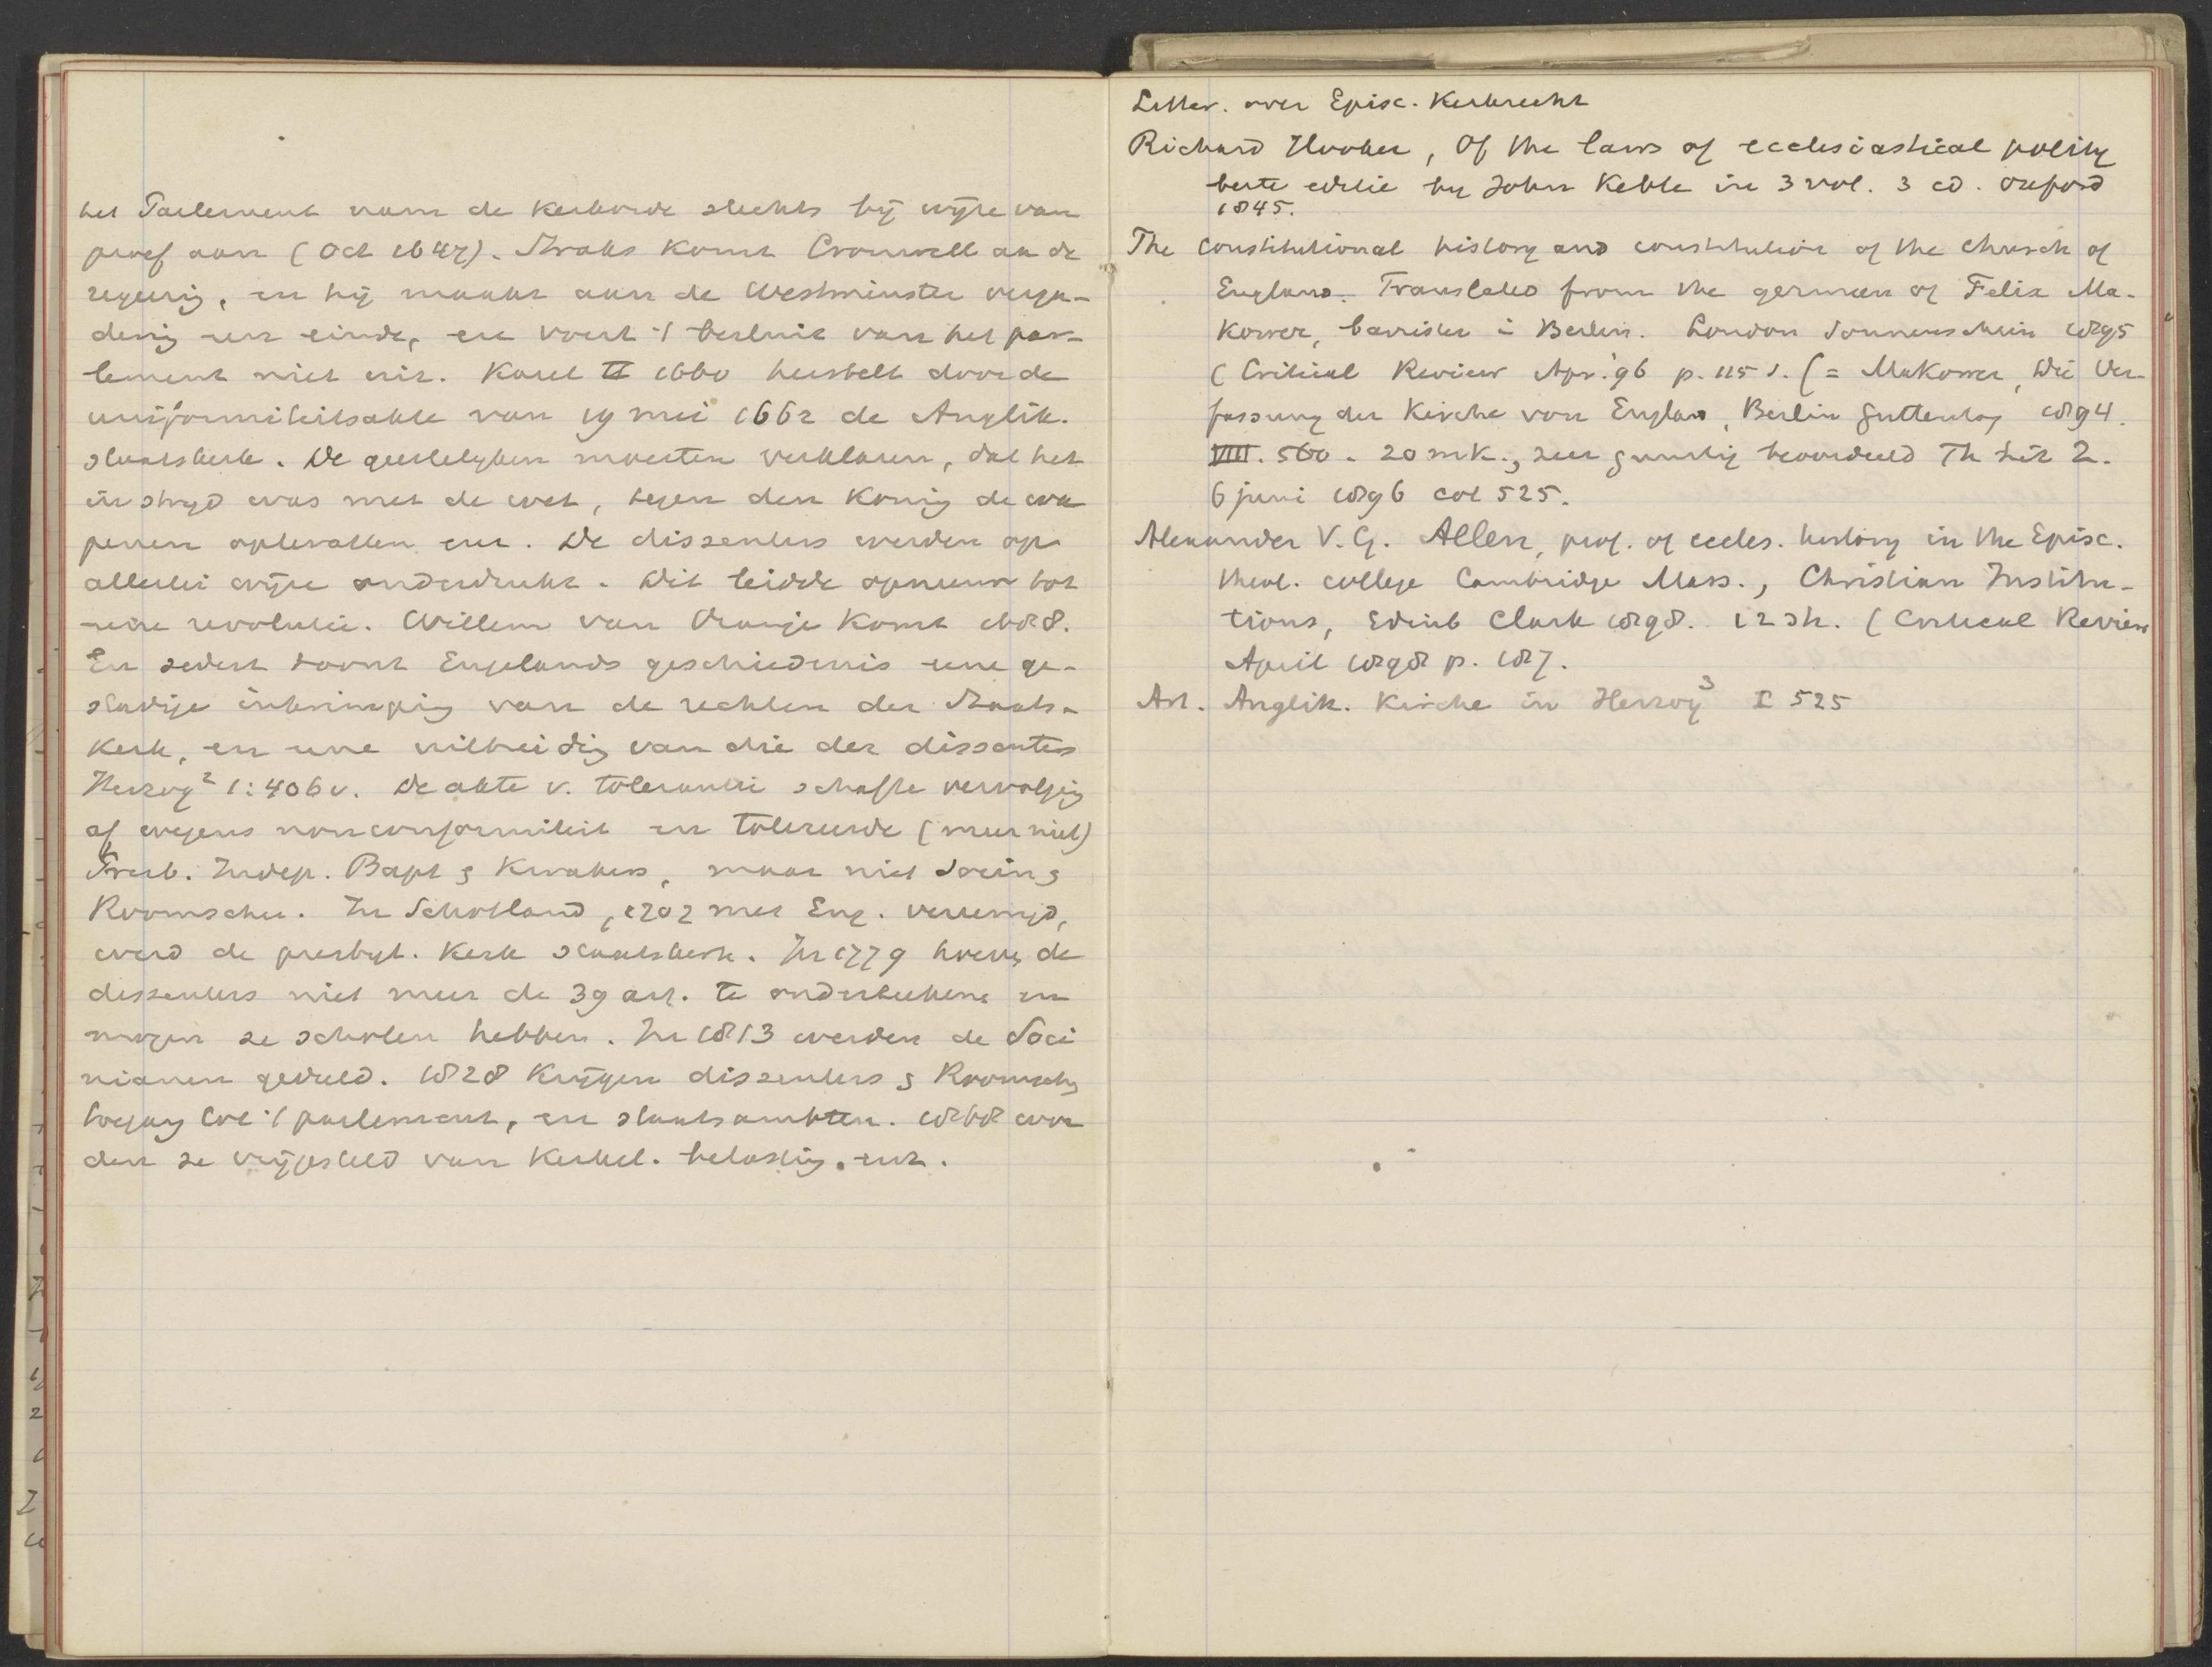 het Parlement nam de kerkorde slechts bij wijze van
proef aan (Oct 1647). Straks komt Cromwell aan de
regeerig, en hij maakt aan de Westminster verga-
derig een einde, en voert 't besluit van het par-
lement niet uit. Karel II 1660 herstelt door de
uniformiteitsakte van 19 mei 1662 de Anglik.
staatskerk. De geestelyken moesten verklaren, dat het
in stryd was met de wet, tegen den Konig de wa
penen optevatten enz. De dissenters werden op
allerlei wijze onderdrukt. Dit leidde opnieuw tot
eene revolutie. Willem van Oranje komt 1688.
En sedert toont Engelands geschiedenis eene ge-
stadige inkrimpig van de rechten der Staats-
kerk, en eene uitbreidig van die der dissenters
Herzog² 1:406 v. De akte v. tolerantie schafte vervolgig
af wegens nonconformiteit en tolereerde (meer niet)
Presb. Indep. Bapt & Kwakers, maar niet Socin &
Roomschen. In Schotland, 1707 met Eng. vereenigd,
werd de presbyt. Kerk staatskerk. In 1779 hoeven de
dissenters niet meer de 39 art. te onderteekenen en
mogen ze scholen hebben. In 1813 werden de Soci
nianen geduld. 1828 krijgen dissenters & Roomsch
toegang tot 't parlement, en staatsambten. 1868 wor
den ze vrijgesteld van Kerkel. belastig. enz.
Litter. over Episc. Kerkrecht
Richard Hooker, Of the laws of ecclesiastical polity
beste editie by John Keble in 3 vol. 3 ed. Oxford
1845.
The constitutional history and constitution of the Church of
England. Translated from the german of Felix Ma-
kower, barrister i Berlin. London Sonnenschein 1895
(Critical Review Apr. '96 p. 115 s. (= Makower, Die Ver-
fassung der Kirche von Englan, Berlin Guttentag 1894.
VIII. 560. 20 mk., zeer gunstig beoordeeld Th Lit Z.
6 juni 1896 col 525.
Alexander V. G. Allen, prof. of eccles. history in the Episc.
theol. college Cambridge Mass., Christian Institu-
tions, Edinb Clark 1898. 12 sh. (Critical Review
April 1898 p. 187.
Art. Anglik. Kirche in Herzog³ I 525